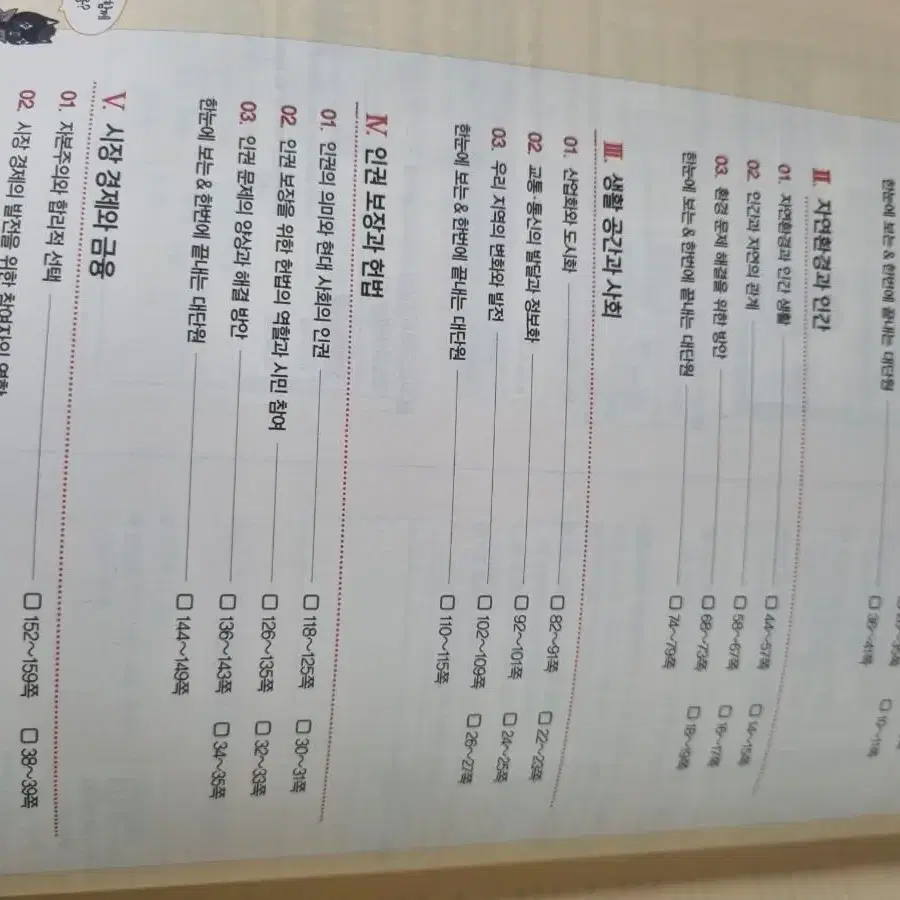 한눈에 보는 & 한번에 끝내는 대단원 □ 36~41쪽 □ 10~11쪽
Ⅱ. 자연환경과 인간
01. 자연환경과 인간 생활 □ 44~57쪽 □ 14~15쪽
02. 인간과 자연의 관계 □ 58~67쪽 □ 16~17쪽
03. 환경 문제 해결을 위한 방안 □ 68~73쪽 □ 18~19쪽
한눈에 보는 & 한번에 끝내는 대단원 □ 74~79쪽
Ⅲ. 생활 공간과 사회
01. 산업화와 도시화 □ 82~91쪽 □ 22~23쪽
02. 교통·통신의 발달과 정보화 □ 92~101쪽 □ 24~25쪽
03. 우리 지역의 변화와 발전 □ 102~109쪽 □ 26~27쪽
한눈에 보는 & 한번에 끝내는 대단원 □ 110~115쪽
Ⅳ. 인권 보장과 헌법
01. 인권의 의미와 현대 사회의 인권 □ 118~125쪽 □ 30~31쪽
02. 인권 보장을 위한 헌법의 역할과 시민 참여 □ 126~135쪽 □ 32~33쪽
03. 인권 문제의 양상과 해결 방안 □ 136~143쪽 □ 34~35쪽
한눈에 보는 & 한번에 끝내는 대단원 □ 144~149쪽
Ⅴ. 시장 경제와 금융
01. 자본주의와 합리적 선택 □ 152~159쪽 □ 38~39쪽
02. 시장 경제의 발전을 위한 참여자의 역할
함께